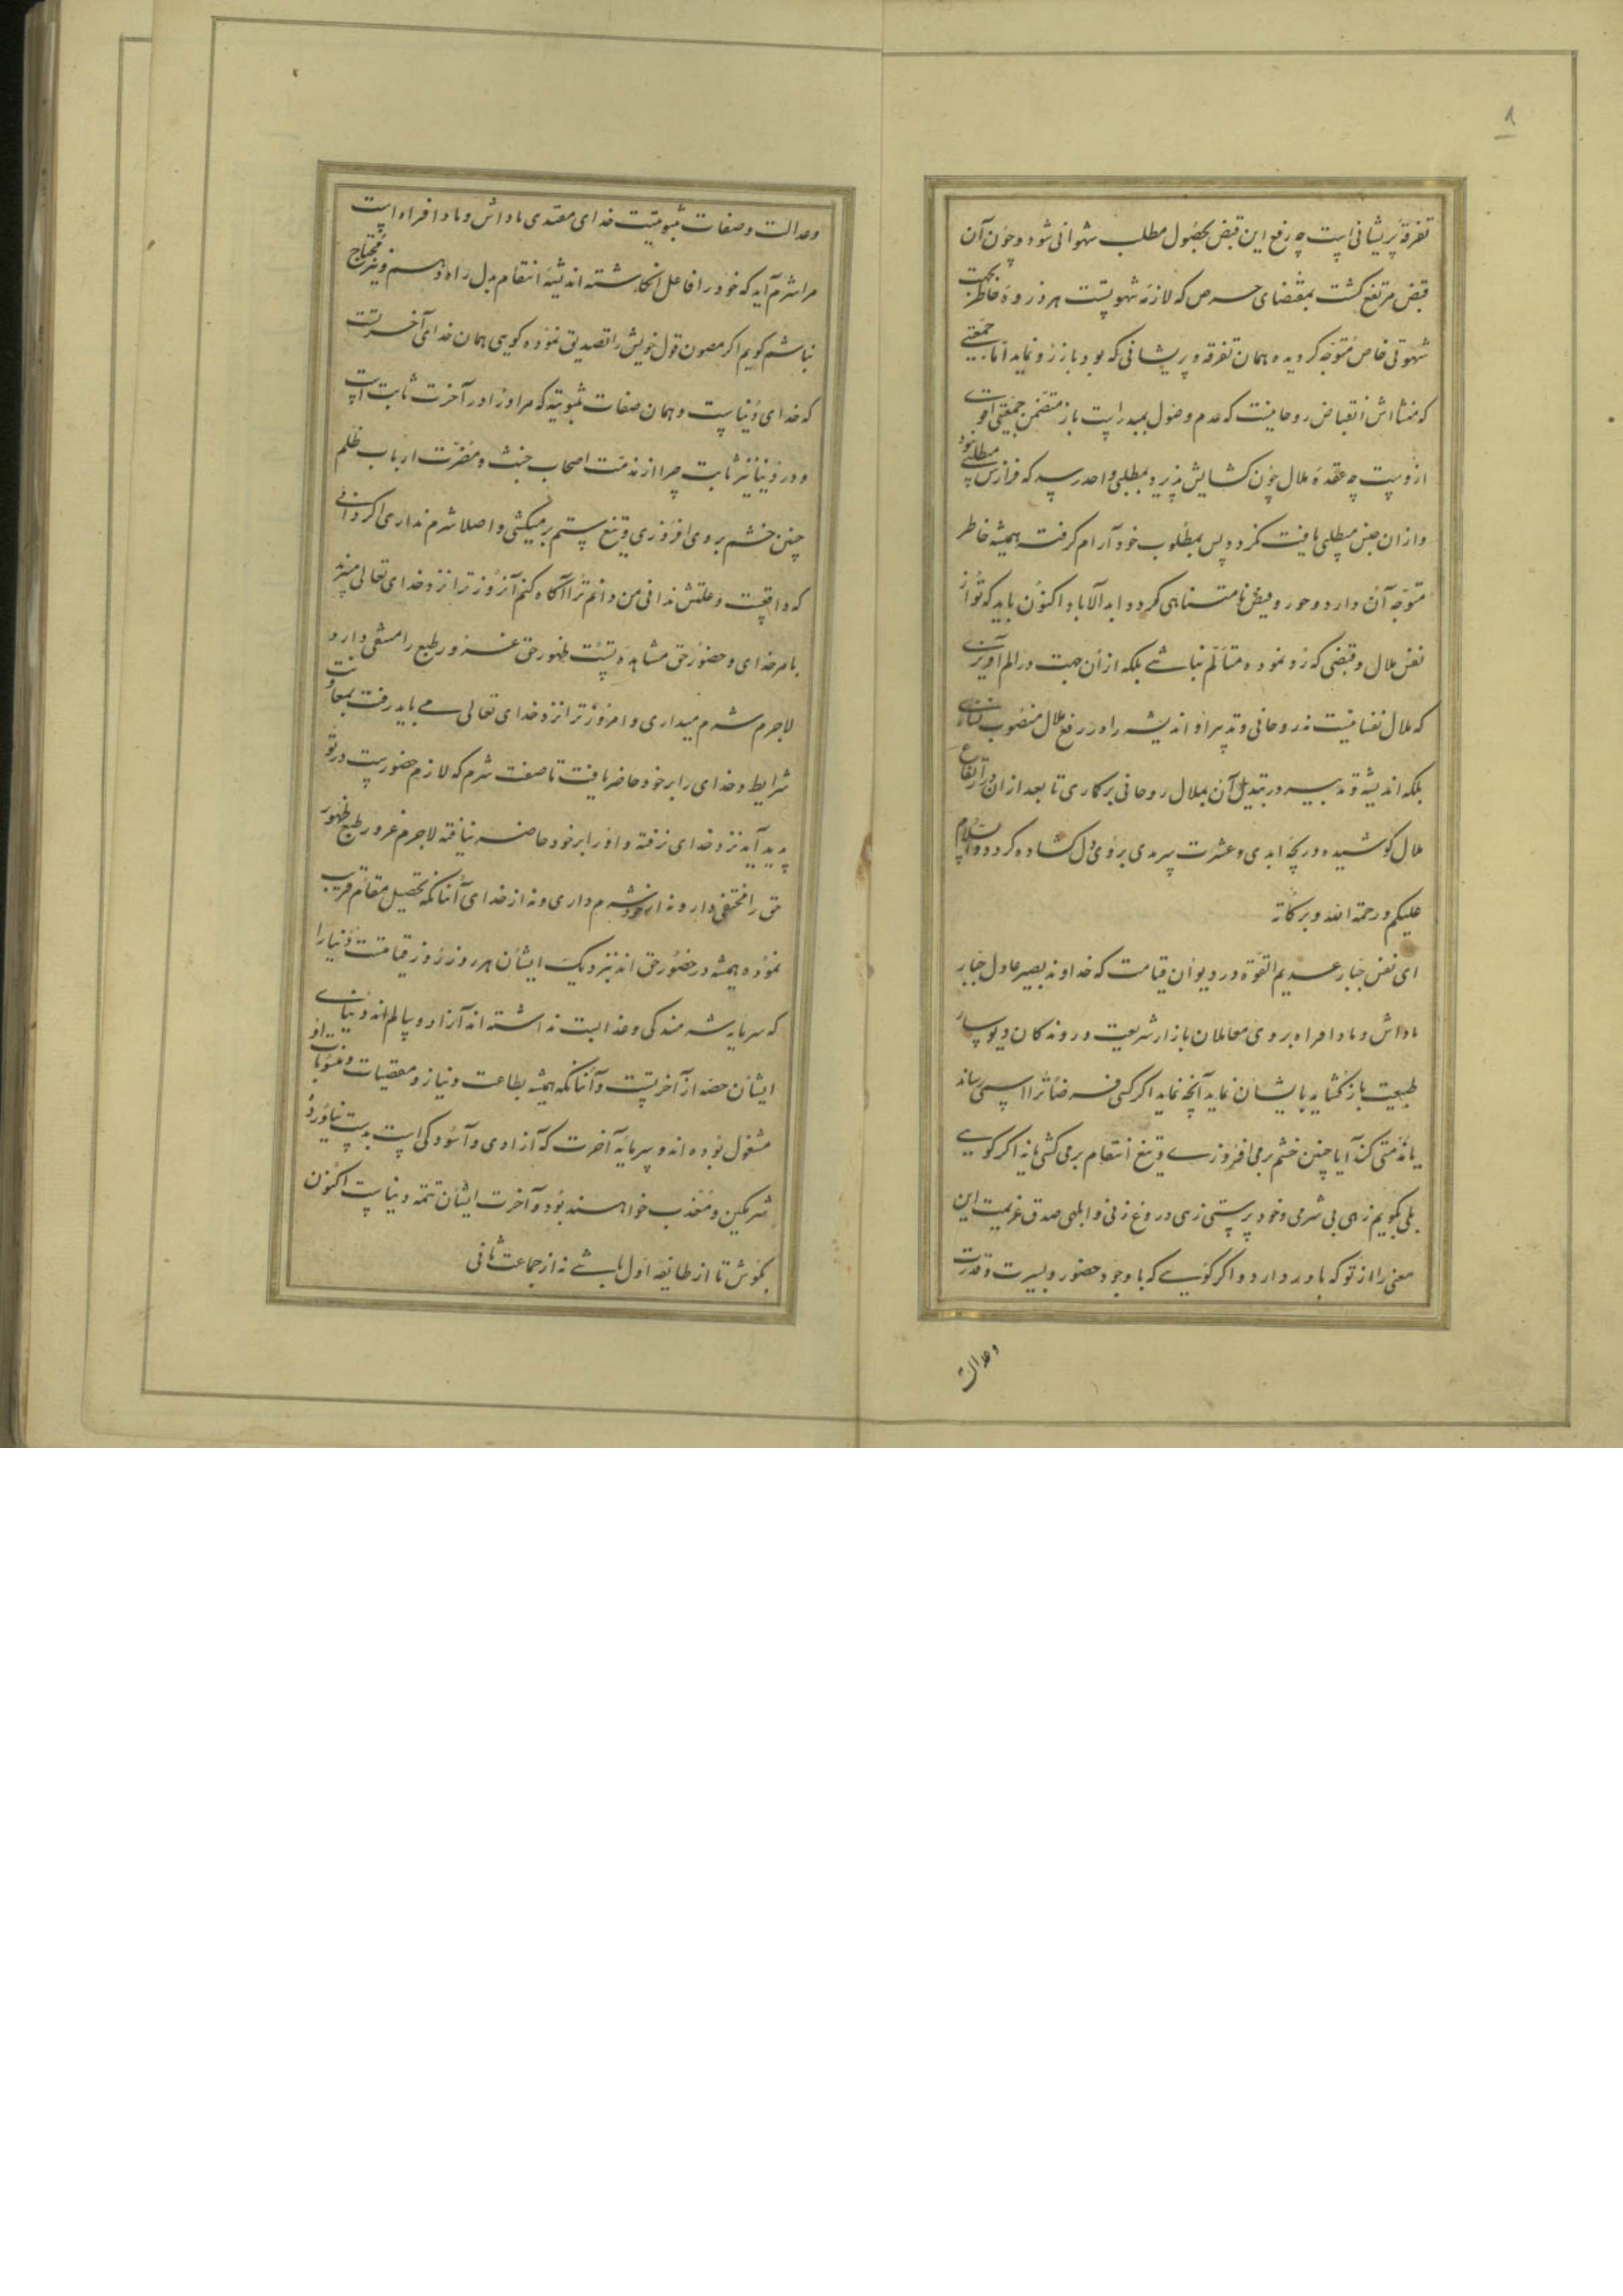 ۸
تفرقه و پریشانی است چه رفع این قبض بحصول مطلب شهوانی شود و چون آن
قبض مرتفع کشت بمقتضای حرص که لازمه شهوتست هر روزه خاطر بجهت
شهوتی خاص متوجه کردیده همان تفرقه و پریشانی که بود باز رو نماید اما جمعیتی
که منشااش انقباض روحانیست که عدم وصول بمبدا است باز متضمن جمعیتی
از وست چه عقده ملال چون کشایش پذیرد بمطلبی واحد رسد که فرازش مطلبی نبود
و از آن جنس مطلبی یافت نکردد پس بمطلوب خود آرام کرفته همیشه خاطر
متوجه آن دارد و فیض نامتناهی کردد ابد الآباد اکنون باید که تو از
نفس ملال و قبضی که رو نموده متالم نباشی بلکه از آن جهت در الم آویزی
که ملال نفسانیست نه روحانی و تدبیر او اندیشه را در رفع ملال منصوب نسازی
بلکه اندیشه و تدبیر در تبدیل آن بملال روحانی برکاری تا بعد از آن در ارتفاع
ملال کوشیده دریچه ابدی و عشرت سرمدی بروی دل کشاده کردد والسلام
علیکم و رحمة الله و برکاته
ای نفس جبار عدیم القوة در دیوان قیامت که خداوند بصیر عادل جبار
باداش و بادافراه بروی معاملان بازار شریعت و روندکان دیوسار
طبیعت باز کشاید بایشان نماید آنچه نماید اگر کسی فرضا ترا اسبی رساند
یا مذمتی کند آیا چنین خشم برمی افروزی و تیغ انتقام برمی کشی یا نه اگر کویی
بلی بگویم زهی بی شرمی و خود پرستی زهی دروغ زنی و ابلهی صدق عزیمت این
معنی را از تو که باور دارد و اگر کویی که با وجود حضور و بسیرت و قدرت
وعدالت
وعدالت و صفات ثبوتیت خدای مقتدی باداش و بادافراه است
مرا شرم آید که خود را فاعل انکاشته اندیشه انتقام بدل راه دهم و نیز محتاج
نباشم کویم اگر مصون قول خویش را تصدیق نموده کویی همان خدای آخرتست
که خدای دنیاست و همان صفات ثبوتیه که مر او را در آخرت ثابت است
و در دنیا نیز ثابت چرا از مذمت اصحاب جنث و مضرت ارباب ظلم
چنین خشم بروی افروزی و تیغ ستم برمیکشی و اصلا شرم نداری اگر دانی
که واقعیست و علتش ندانی من دانم ترا آکاه کنم آنروز ترا نزد خدای تعالی میبرند
بامر خدای و حضور حق مشاهده تست ظهور حق غرور طبع را منتفی دارد
لاجرم شرم میداری و امروز ترا نزد خدای تعالی می باید رفت بمعاونت
شرایط و خدای را بر خود حاضر یافت تا صفت شرم که لازم حضورست در تو
پدید آید نزد خدای نرفته و او را بر خود حاضر نیافته لاجرم غرور طبع ظهور
حق را مختفی دارد نه از خود شرم داری و نه از خدای آنانکه تحصیل مقام قرب
نموده همیشه در حضور حق اند نزدیک ایشان هر روز روز قیامتست دنیا را
که سرمایه شرمندکی و عذابست نداشته اند آزاد و سالم اند دنیای
ایشان حصه از آخرتست و آنانکه همیشه بطاعت و نیاز و مقضیات و منسوبات او
مشغول بوده اند و سرمایه آخرت که آزادی و آسودکی است بدست نیاورده
شرمکین و معذب خواهند بود و آخرت ایشان تتمه دنیاست اکنون
بکوش تا از طایفه اول باشی نه از جماعت ثانی